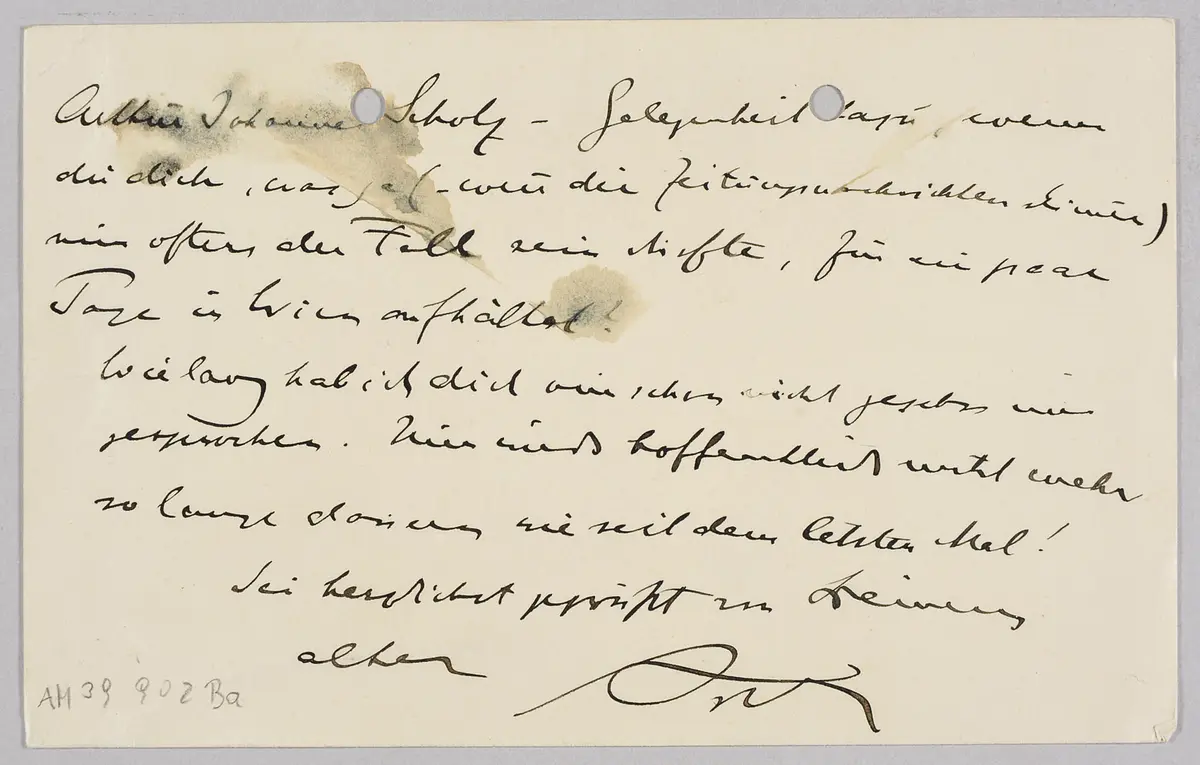 Arthur Johannes Scholz – Gelegenheit dazu, wenn
du dich, was ja (– wenn die Zeitungsnachrichten stimmen)
nun öfters der Fall sein dürfte, für ein paar
Tage in Wien aufhältst!
Wie lang hab ich dich nun schon nicht gesehen und
gesprochen. Nun wirds hoffentlich nicht mehr
so lange dauern wie seit dem letzten Mal!
Sei herzlichst gegrüßt von Deinem
alten
AM 39 902 Ba